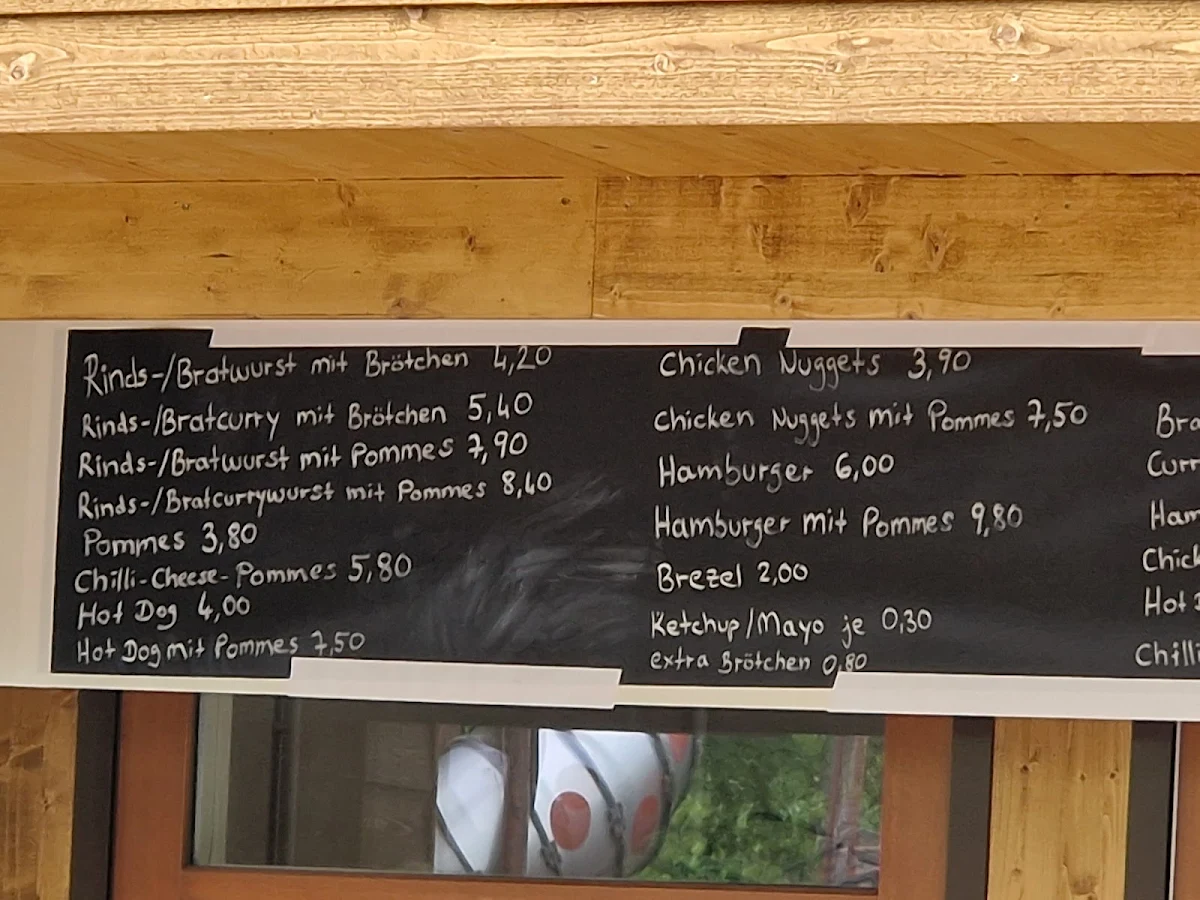 Rinds-/Bratwurst mit Brötchen 4,20
Rinds-/Bratcurry mit Brötchen 5,40
Rinds-/Bratwurst mit Pommes 7,90
Rinds-/Bratcurrywurst mit Pommes 8,40
Pommes 3,80
Chilli-Cheese-Pommes 5,80
Hot Dog 4,00
Hot Dog mit Pommes 7,50
Chicken Nuggets 3,90
Chicken Nuggets mit Pommes 7,50
Hamburger 6,00
Hamburger mit Pommes 9,80
Brezel 2,00
Ketchup/Mayo je 0,30
extra Brötchen 0,80
Bra
Curr
Ham
Chick
Hot
Chilli